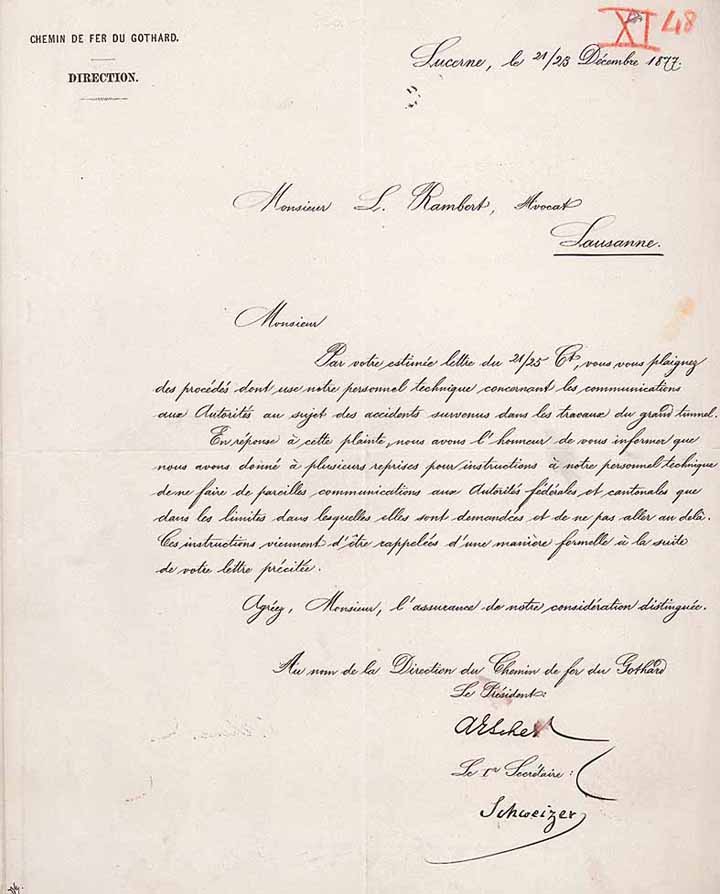 CHEMIN DE FER DU GOTHARD.
DIRECTION.
XI 48
Lucerne, le 21/23 Décembre 1877.
Monsieur L. Rambert, Avocat
Lausanne.
Monsieur
Par votre estimée lettre du 21/25 Ct, vous vous plaignez
des procédés dont use notre personnel technique concernant les communications
aux Autorités au sujet des accidents survenus dans les travaux du grand tunnel.
En réponse à cette plainte, nous avons l'honneur de vous informer que
nous avons donné à plusieurs reprises pour instructions à notre personnel technique
de ne faire de pareilles communications aux Autorités fédérales et cantonales que
dans les limites dans lesquelles elles sont demandées et de ne pas aller au delà.
Ces instructions viennent d'être rappelées d'une manière formelle à la suite
de votre lettre précitée.
Agréez, Monsieur, l'assurance de notre considération distinguée.
Au nom de la Direction du Chemin de fer du Gothard
Le Président:
AEscher
Le 1er Secrétaire:
Schweizer